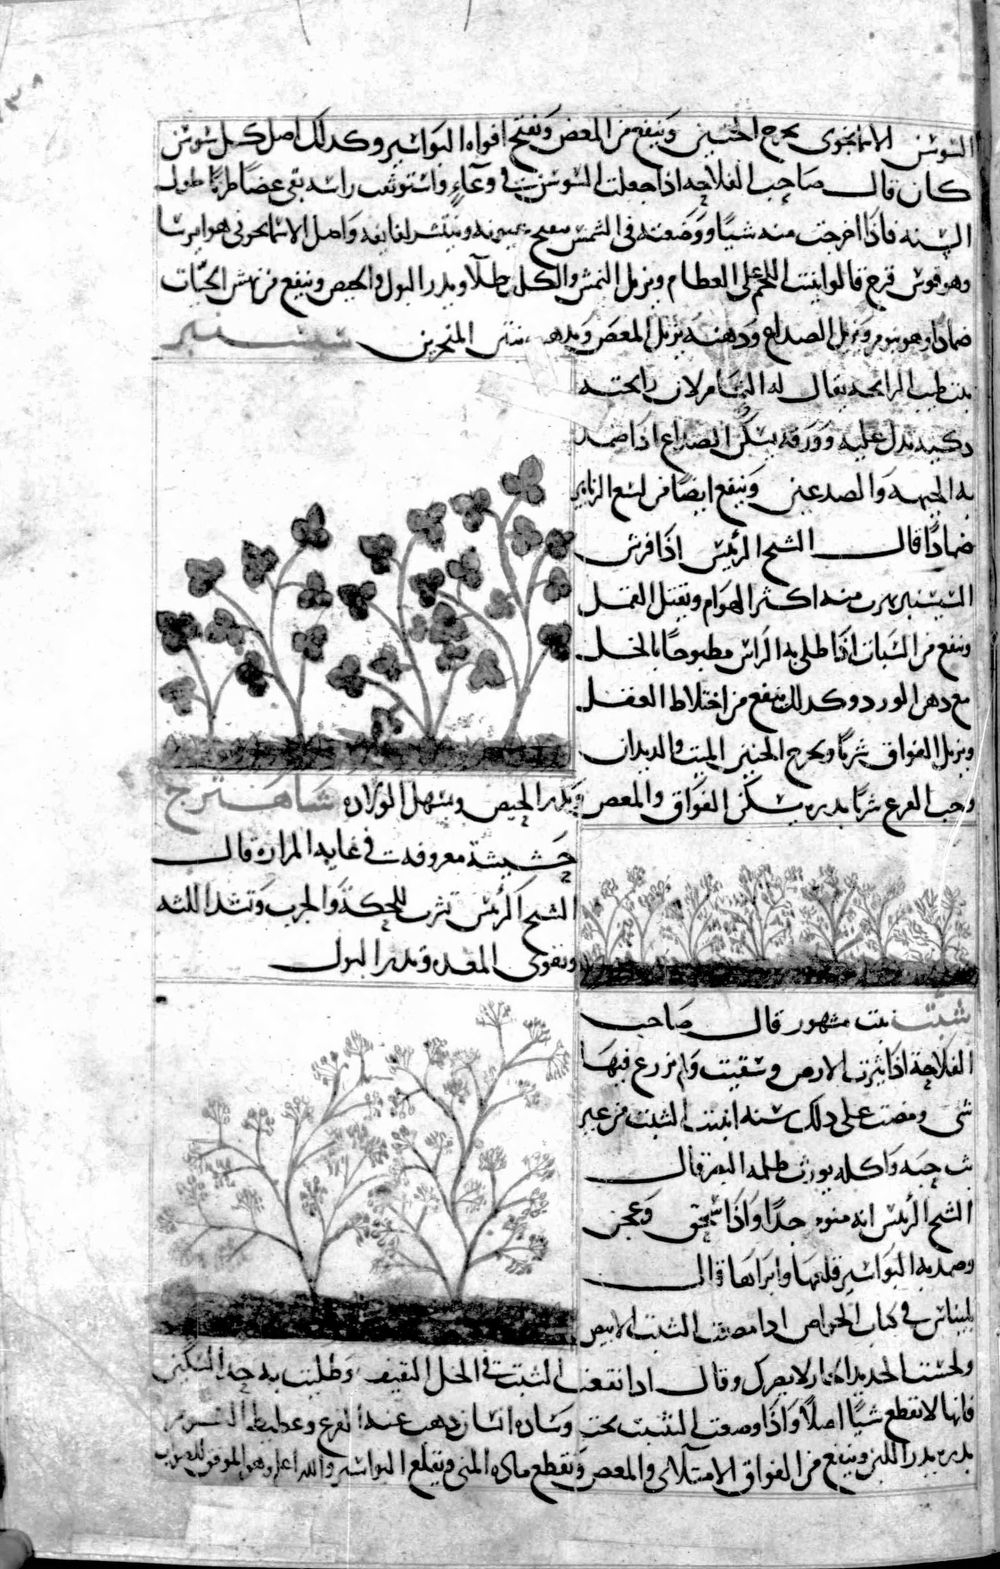 السوسن الاسمانجونى يخرج الجنين وينفع من المغص ويفتح افواه البواسير وكذلك اصل كل سوسن
كان قال صاحب الفلاحه اذا جعلت السوسن فى وعاء واستوثقت راسه بقى غضا طريا طول
السنه فاذا اخرجت منه شيا ووضعته فى الشمس وينتشر واصل الاسمانجونى هو ايرسا
وهو قوس قزح قالوا ينبت اللحم على العظام ويزيل النمش والكلف طلآ ويدر البول والحيض وينفع من نهش الحيات
ضمادا وهو ينوم ويزيل الصداع ودهنه يزيل المغص نتن المنخرين سيسنبر
نبت طيب الرايحه يقال له النمام لان رايحته
ذكيه تدل عليه وورقه يسكن الصداع اذا ضمد
به الجبهه والصدغين وينفع ايضا من لسع الزنابير
ضمادا قال الشيخ الرئيس اذا فرش
السيسنبر هرب منه اكثر الهوام ويقتل القمل
وينفع من النسيان اذا طلى به الراس مطبوخا بالخل
مع دهن الورد وكذلك ينفع من اختلاط العقل
ويزيل الفواق شربا ويخرج الجنين الميت والديدان
وحب القرع شربا بدره يسكن الفواق والمغص ويدر الحيض ويسهل الولاده شاهترج
حشيشة معروفة فى غايه المراره قال
الشيخ الرئيس تشرب للحكة والجرب وتشد اللثه
وتقوى المعده وتدر البول
شبت نبت مشهور قال صاحب
الفلاحة اذا اثيرت الارض وسقيت ولم يزرع فيها
شى ومضت على ذلك سنه انبتت الشبت من غير
حبه واكله يورث ظلمه البصر قال
الشيخ الرئيس انه منوم جدا واذا سحق وعجن
وضمد به البواسير قلعها وابراها قال
بليناس فى كتاب الخواص اذا مضغت الشبت الابيض
ولحست الحديد النار لا يضرك وقال اذا نقعت الشبت فى الخل الثقيف وطليت به حد السكين
فانها لا تقطع شيا اصلا واذا وضعت الشبت تحت وسادة انسان ذهب عنه الفزع وغطيط النوم
بدره يدر اللبن وينفع من الفواق الامتلائى والمغص ويقطع ماده المنى ويقلع البواسير والله اعلم وهو الموفق للصواب